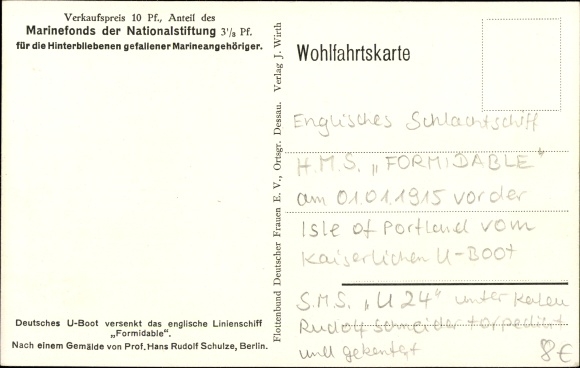 Verkaufspreis 10 Pf., Anteil des
Marinefonds der Nationalstiftung 3⅓ Pf.
für die Hinterbliebenen gefallener Marineangehöriger.
Deutsches U-Boot versenkt das englische Linienschiff
„Formidable“.
Nach einem Gemälde von Prof. Hans Rudolf Schulze, Berlin.
Flottenbund Deutscher Frauen E. V., Ortsgr. Dessau. Verlag J. Wirth
Wohlfahrtskarte
Englisches Schlachtschiff
H.M.S. „FORMIDABLE“
am 01.01.1915 vor der
Isle of Portland vom
Kaiserlichen U-Boot
S.M.S. „U 24“ unter
Rudolf Schneider torpediert
und gekentert
8€